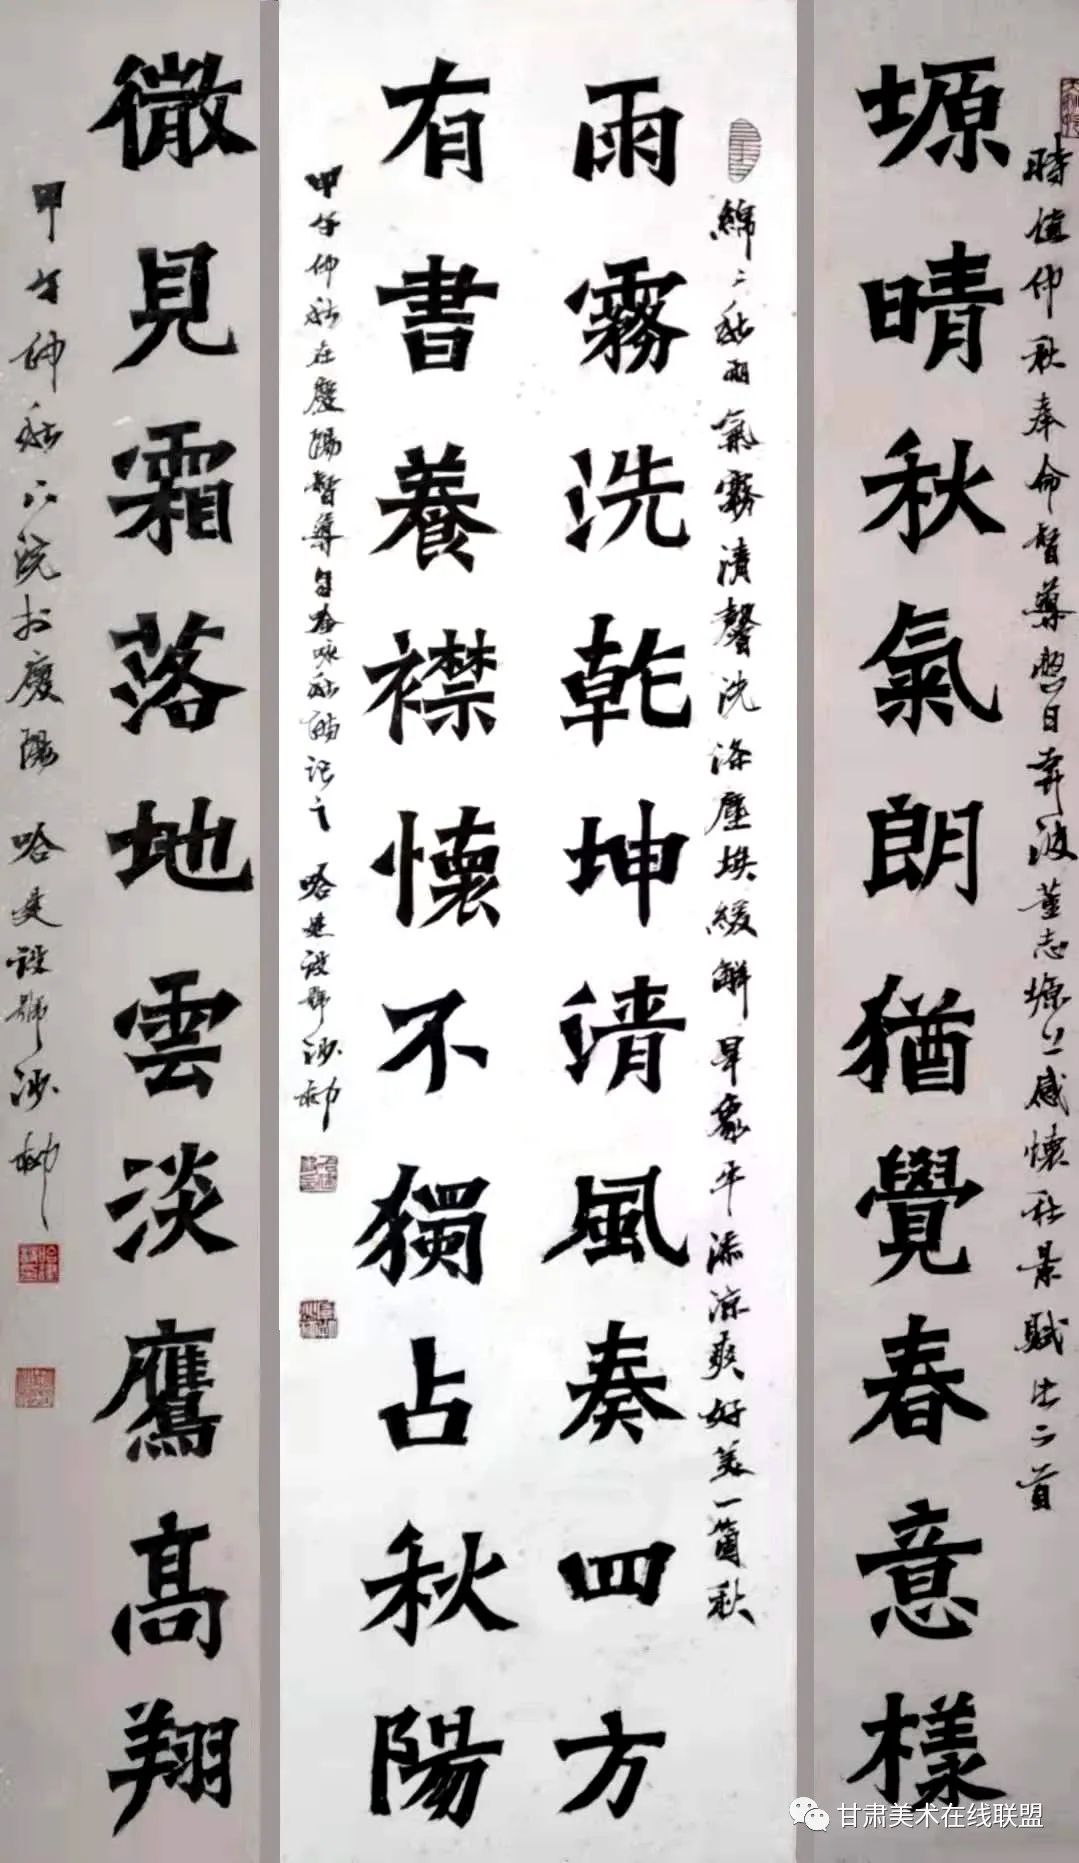 時值仲秋奉命督導整日奔波董志塬上感懷秋景賦此二首
塬晴秋氣朗猶覺春意樣
綿〻秋雨氣霧漬馨洗滌塵埃緩解旱象平添涼爽好美一箇秋
雨霧洗乾坤清風奏四方
有書養襟懷不獨占秋陽
甲午仲秋在慶陽督導自吟詠秋韻記之 哈建設號沙柳
微見霜落地雲淡鷹高翔
甲午仲秋下浣於慶陽 哈建設號沙柳
甘肃美术在线联盟